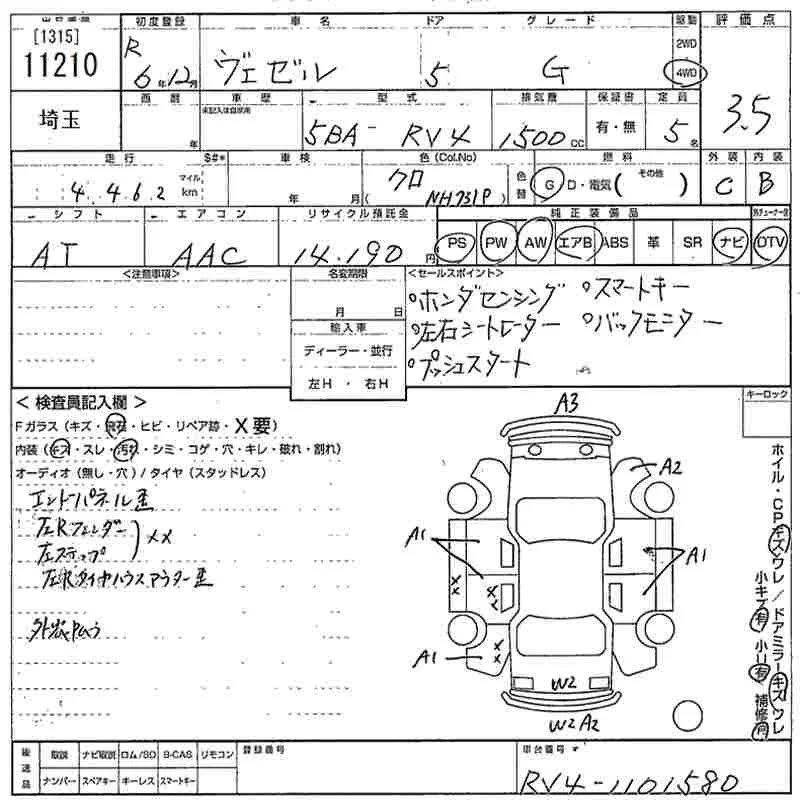 [1315]
11210
埼玉
初度登録
R 6年12月
車名
ヴェゼル
ドア
5
グレード
G
駆動
2WD
4WD
評価点
3.5
西暦
年
車歴
未記入は自家用
型式
5BA- RV4
排気量
1500cc
保証書
有・無
定員
5名
走行
4.4.6.2
マイル
km
S#*
車検
年 月
色(Col.No)
クロ
(NH731P)
色替
燃料
G D・電気( その他 )
外装
C
内装
B
シフト
AT
エアコン
AAC
リサイクル預託金
14.190円
純正装備品
PS PW AW エアB ABS 革 SR ナビ
DTV
<注意事項>
名変期限
月 日
輸入車
ディーラー・並行
左H ・ 右H
<セールスポイント>
○ホンダセンシング ○スマートキー
○左右シートヒーター ○バックモニター
○プッシュスタート
キーロック
< 検査員記入欄 >
Fガラス(キズ・飛石・ヒビ・リペア跡・X要)
内装(キズ・スレ・汚れ・シミ・コゲ・穴・キレ・破れ・割れ)
オーディオ(無し・穴)/タイヤ(スタッドレス)
エンドパネル歪
左Rフェンダー
左ステップ
XX
左Rタイヤハウスアウター歪
A3
A2
A1
A1
A1
XX
XX
XX
W2
W2 A2
ホイル・CPキズワレ/ドアミラーキズワレ
小キズ有 小凹有 補修有
後送品
取説 ナビ取説 ロム/SD B-CAS リモコン
ナンバー スペアキー キーレス スマートキー
登録番号
車台番号
RV4-1101580